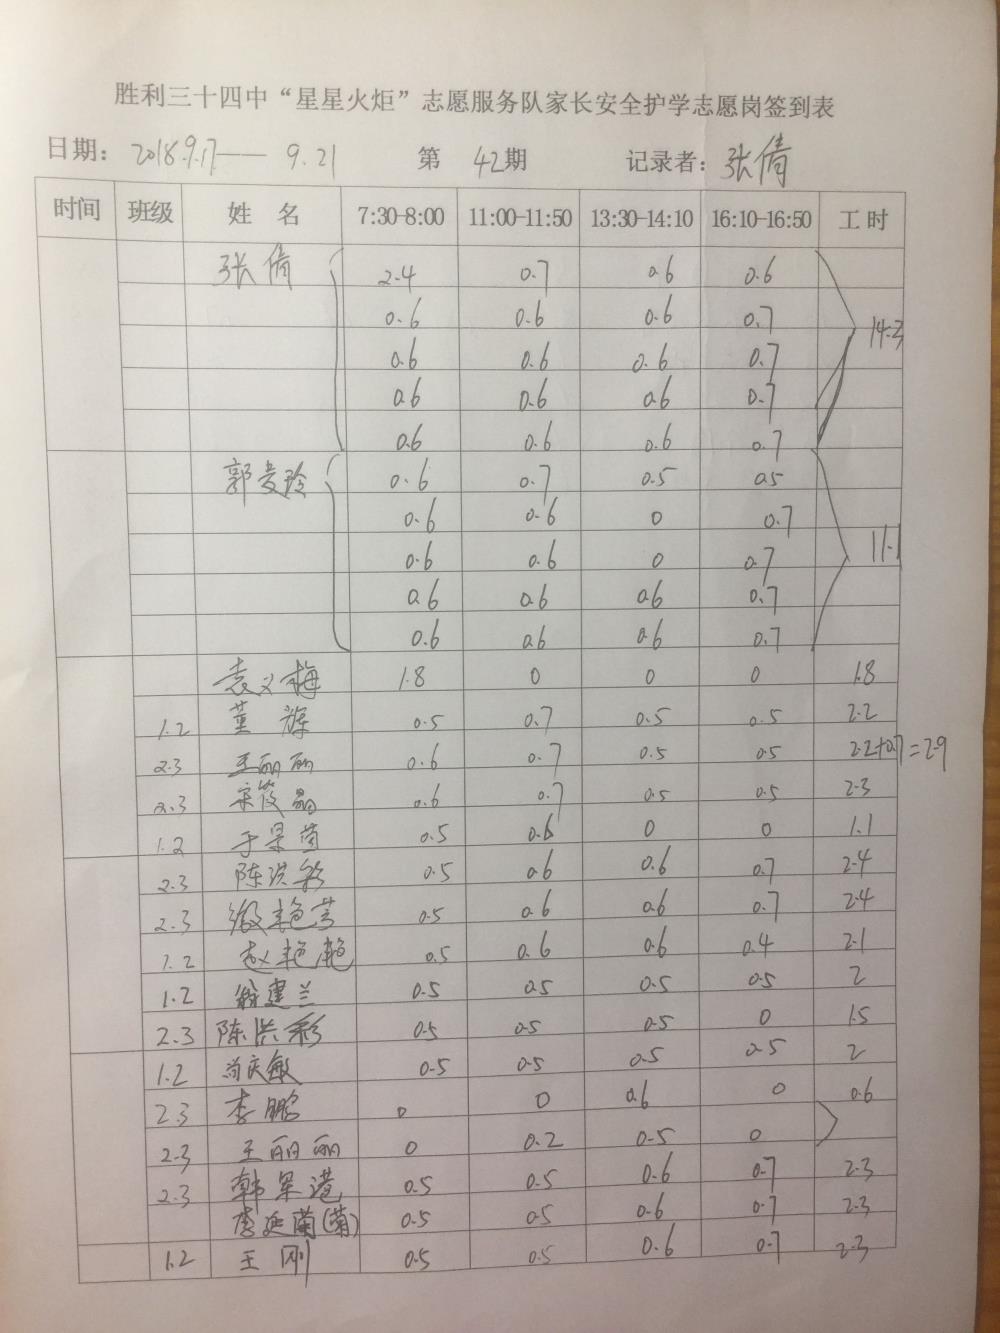 胜利三十四中“星星火炬”志愿服务队家长安全护学志愿岗签到表
日期：2018.9.17—— 9.21 第 42期 记录者：张倩
时间 班级 姓 名 7:30-8:00 11:00-11:50 13:30-14:10 16:10-16:50 工 时
张倩 2.4 0.7 0.6 0.6
0.6 0.6 0.6 0.7
0.6 0.6 0.6 0.7 14.3
0.6 0.6 0.6 0.7
0.6 0.6 0.6 0.7
郭爱玲 0.6 0.7 0.5 0.5
0.6 0.6 0 0.7
0.6 0.6 0 0.7 11.1
0.6 0.6 0.6 0.7
0.6 0.6 0.6 0.7
袁义梅 1.8 0 0 0 1.8
1.2 董 0.5 0.7 0.5 0.5 2.2
2.3 王丽丽 0.6 0.7 0.5 0.5 2.2+0.7=2.9
2.3 宋筱晶 0.6 0.7 0.5 0.5 2.3
1.2 于果茵 0.5 0.6 0 0 1.1
2.3 陈洪彩 0.5 0.6 0.6 0.7 2.4
2.3 艳芳 0.5 0.6 0.6 0.7 2.4
1.2 赵艳艳 0.5 0.6 0.6 0.4 2.1
1.2 翁建兰 0.5 0.5 0.5 0.5 2
2.3 陈洪彩 0.5 0.5 0.5 0 1.5
1.2 尚庆敏 0.5 0.5 0.5 0.5 2
2.3 李鹏 0 0 0.6 0 0.6
2.3 王丽丽 0 0.2 0.5 0
2.3 韩果港 0.5 0.5 0.6 0.7 2.3
李延兰(菊) 0.5 0.5 0.6 0.7 2.3
1.2 王刚 0.5 0.5 0.6 0.7 2.3